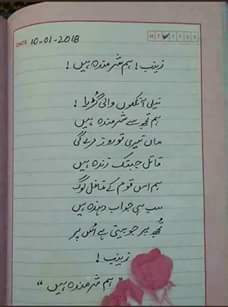 DATE 10-01-2018
M T W T F S S
زینب! ہم شرمندہ ہیں!
نیلی آنکھوں والی گڑیا!
ہم تجھ سے شرمندہ ہیں
ماں تیری تو روز مرے گی
قاتل جب تک زندہ ہیں
ہم اس قوم کے غافل لوگ
سب ہی جواب دہندہ ہیں
تجھ پر جو بیتی ہے اس پر
زینب!
"ہم شرمندہ ہیں"